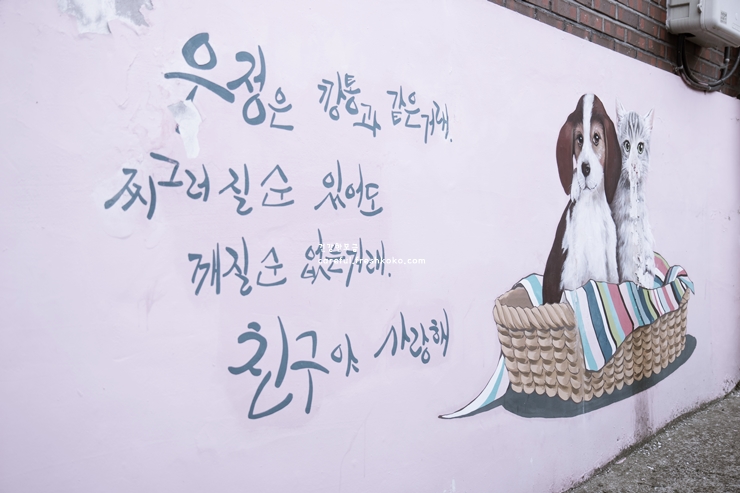 우정은 깡통과 같은거래.
찌그러질 순 있어도
깨질 순 없는거래.
친구야 사랑해
careful.freshkoko.com